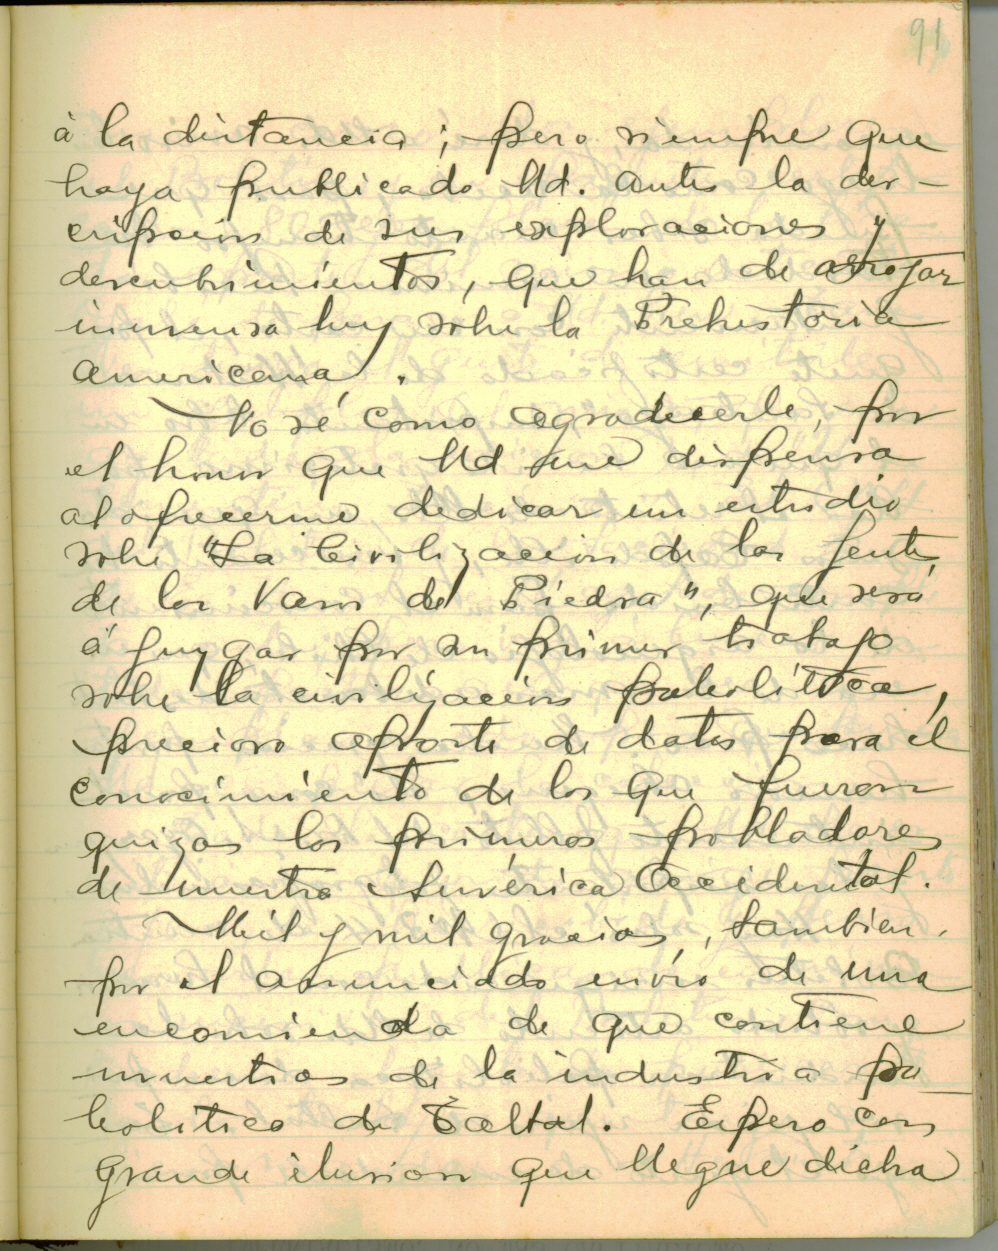 91
à la distancia; pero siempre que
haya publicado Ud. antes la des-
cripcion de sus exploraciones y
descubrimientos, que han de arrojar
inmensa luz sobre la Prehistoria
americana.
No sé como agradecerle, por
el honor que Ud me dispensa
al ofrecerme dedicar un estudio
sobre "La Civilizacion de las Gentes
de los Vasos de Piedra", que será
á juzgar por su primer trabajo
sobre la civilizacion paleolítica,
precioso aporte de datos para el
conocimiento de los que fueron
quizas los primeros pobladores
de nuestra América Occidental.
Mil y mil gracias, tambien.
por el anunciado envío de una
encomienda de que contiene
muestras de la industria pa
leolitica de Taltal. Espero con
grande ilusion que llegue dicha